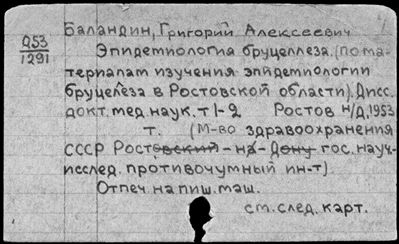 Баландин, Григорий Алексеевич
Д53
1291
Эпидемиология бруцеллеза. (По ма-
териалам изучения эпидемиологии
бруцелеза в Ростовской области). Дисс.
докт. мед. наук. т 1-2 Ростов н/Д, 1953
т. (М-во здравоохранения
СССР Ростовский - на - Дону гос. науч-
исслед. противочумный ин-т).
Отпеч. на пиш. маш.
см. след. карт.